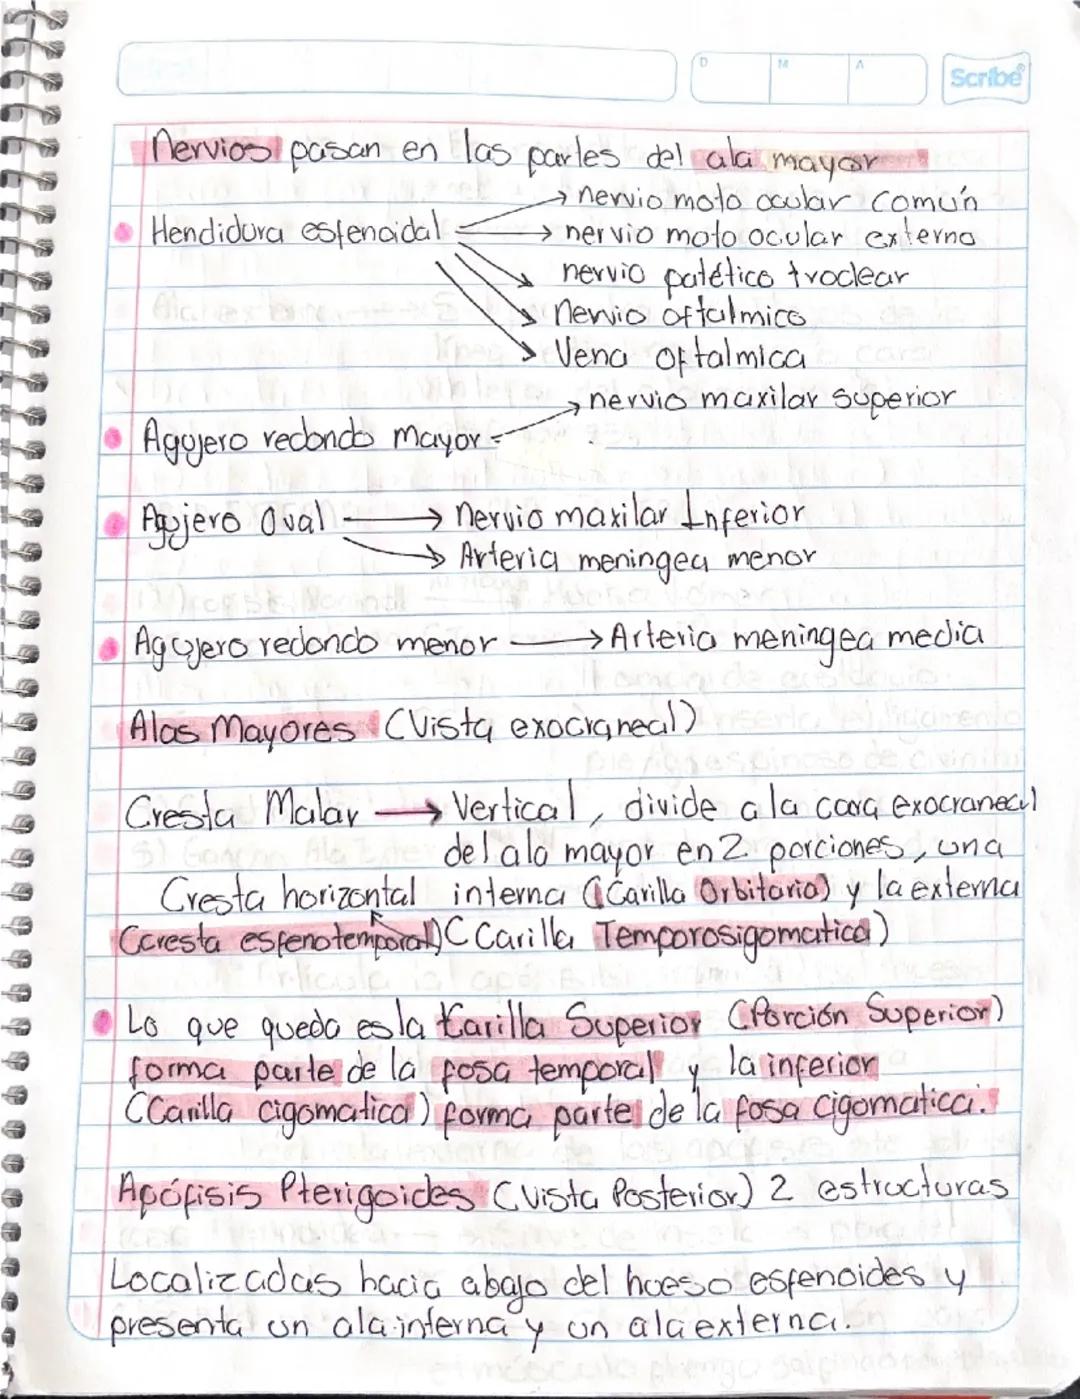 D M A Scribe
Nervios pasan en las partes del ala mayor
→ nervio moto ocular común
Hendidura esfenoidal → nervio moto ocular externo
nervio patético troclear
Nervio oftalmico
Vena oftalmica
→ nervio maxilar superior
Agujero redondo mayor
Agujero Oval → nervio maxilar Inferior
→ Arteria meningea menor
Agujero redondo menor → Arteria meningea media
Alas Mayores (Vista exocraneal)
Cresta Malar → Vertical, divide a la cara exocraneal
del ala mayor en 2 porciones, una
Cresta horizontal interna (Carilla Orbitaria) y la externa
(cresta esfenotemporal) (Carilla Temporosigomatica)
Lo que queda es la Carilla Superior (Porción Superior)
forma parte de la fosa temporal y la inferior
(Carilla cigomatica) forma parte de la fosa cigomatica.
Apófisis Pterigoides (Vista Posterior) 2 estructuras
Localizadas hacia abajo del hueso esfenoides y
presenta un ala interna y un ala externa.